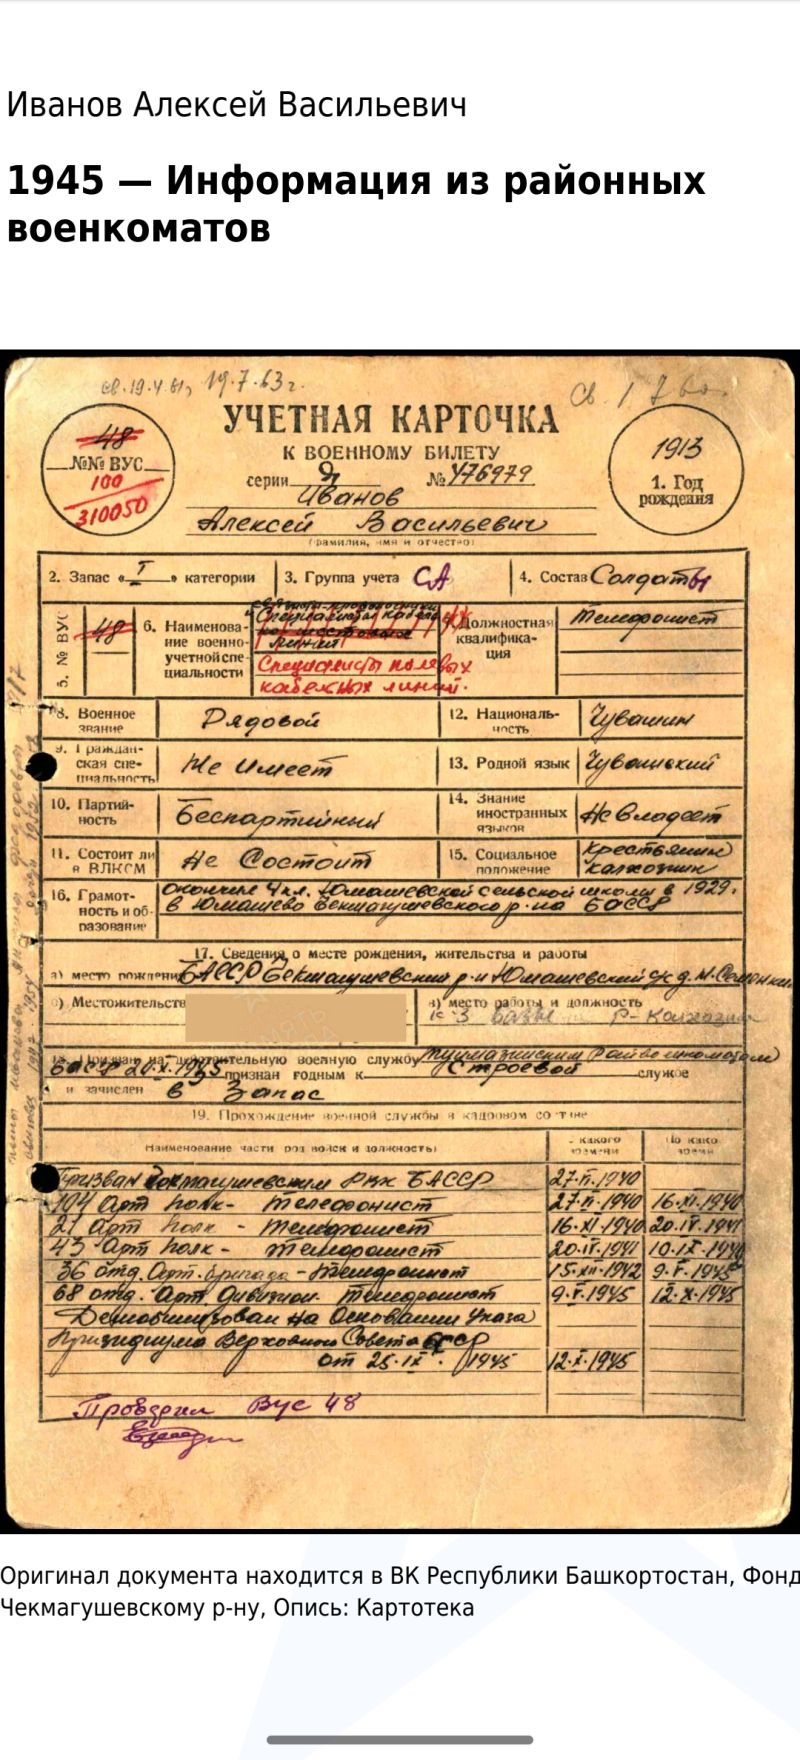 Иванов Алексей Васильевич
1945 — Информация из районных
военкоматов
св. 19.4.61, 19.7.63 г.
УЧЕТНАЯ КАРТОЧКА
К ВОЕННОМУ БИЛЕТУ
серии Я № 476979
48
№№ ВУС
100
310050
1913
1. Год
рождения
Иванов
Алексей Васильевич
(фамилия, имя и отчество)
2. Запас «I» категории
3. Группа учета СА
4. Состав Солдаты
5. № ВУС 48
6. Наименова-
ние военно-
учетной спе-
циальности
Специалисты полевых
кабельных линий.
Должностная
квалифика-
ция
Телефонист
8. Военное
звание
Рядовой
12. Националь-
ность
Чувашин
9. Граждан-
ская спе-
циальность
Не имеет
13. Родной язык Чувашский
10. Партий-
ность
Беспартийный
14. Знание
иностранных
языков
Не владеет
11. Состоит ли
в ВЛКСМ
Не Состоит
15. Социальное
положение
Крестьянин
колхозник
16. Грамот-
ность и об-
разование
Окончил 4 кл. Юмашевской сельской школы в 1929.
в Юмашево Бекмагушевского р-на БАССР
17. Сведения о месте рождения, жительства и работы
а) место рождения БАССР Бекмагушевский р-н Юмашевский с/с д.
б) Местожительств
в) место работы и должность
к-з
18. Призван на действительную военную службу Туймазинским Райвоенкоматом
БАССР 20.X.1945 признан годным к Строевой службе
и зачислен в Запас
19. Прохождение военной службы в кадровом составе
Наименование части род войск и должность)
с какого
времени
По како
время
Призван Чекмагушевским РВК БАССР 27.II.1940
194 Арт полк - телефонист 27.II.1940 16.XI.1940
21 Арт полк - телефонист 16.XI.1940 20.IV.1941
43 Арт полк - телефонист 20.IV.1941
36 отд. Арт. бригада - телефонист 15.XII.1942 9.V.1945
68 отд. Арт. Дивизион. телефонист 9.V.1945 12.X.1945
Демобилизован на Основании Указа
Призидиума Верховного Совета СССР
от 25.IX. 1945 12.X.1945
Проверил Вус 48
Оригинал документа находится в ВК Республики Башкортостан, Фонд
Чекмагушевскому р-ну, Опись: Картотека